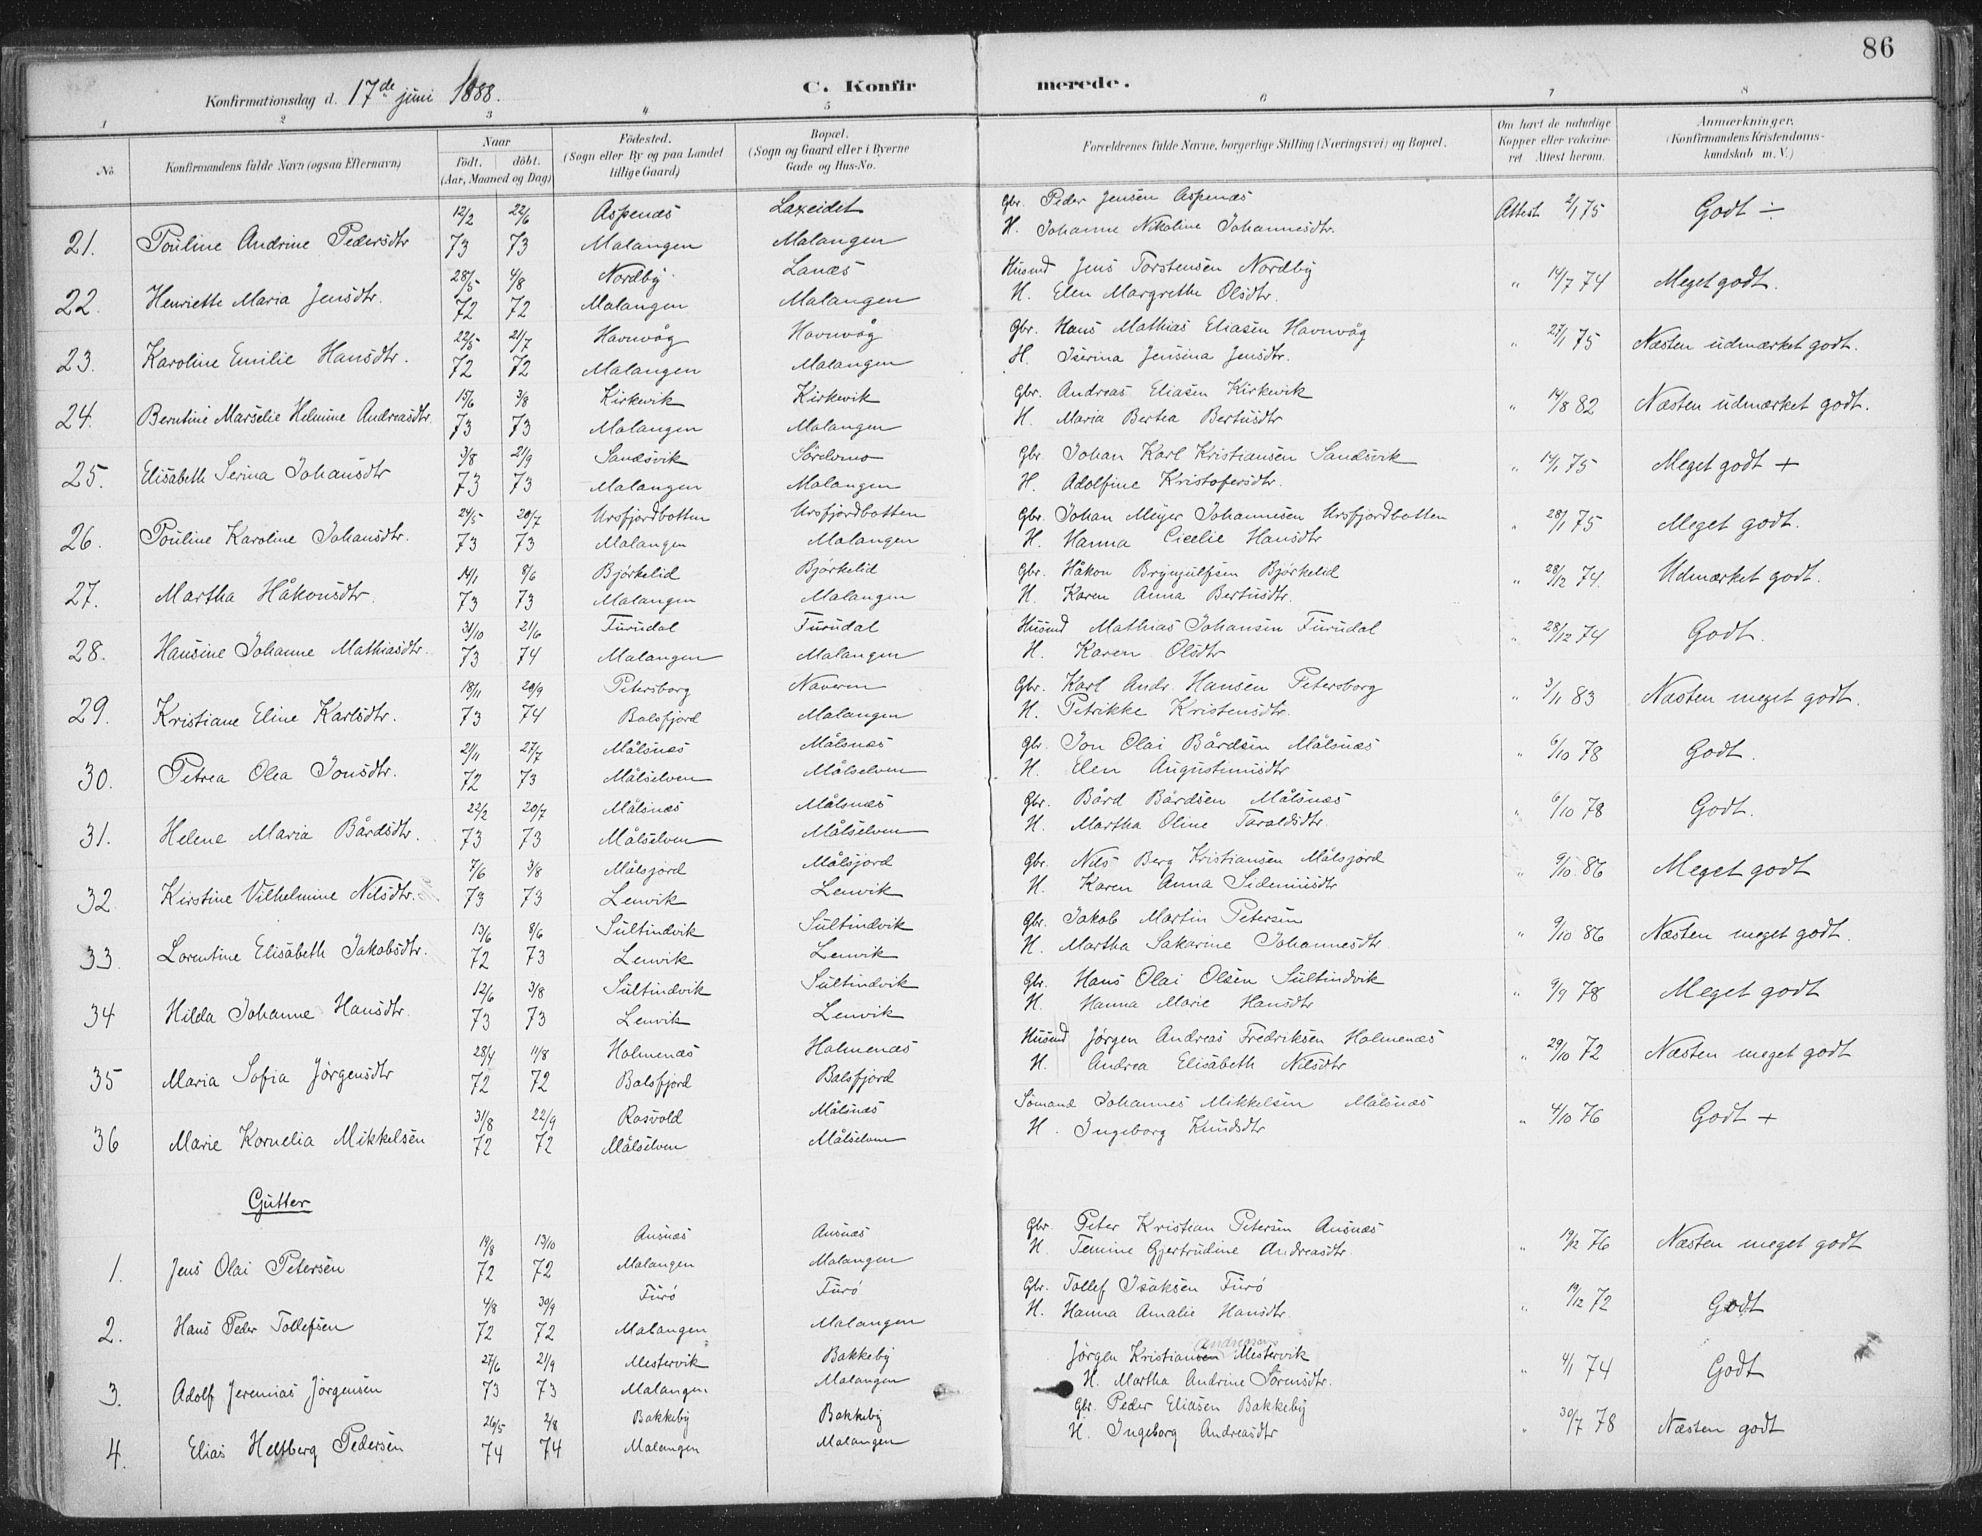 86
Konfirmationsdag d. 17de juni 1888. C. Konfirmerede.
1 2 3 4 5 6 7 8
No. Konfirmandens fulde Navn (ogsaa Efternavn) Naar født. døbt. (Aar, Maaned og Dag) Fødested. (Sogn eller By og paa Landet tillige Gaard) Bopæl. (Sogn og Gaard eller i Byerne Gade og Hus-No. Forældrenes fulde Navne, borgerlige Stilling (Næringsvei) og Bopæl. Om havt de naturlige Kopper eller vakcineret. Attest herom. Anmærkninger. (Konfirmandens Kristendomskundskab m. V.)
12/2 22/6 Aspenæs Laxeidet Gbr. Peder Jensen Aspenæs Attest 2/1 75 Godt ÷
21. Pouline Andrine Pedersdtr 73 73 Malangen Malangen H. Johanne Nikoline Johannesdtr.
28/5 4/8 Nordby Lanæs Husmd Jens Torstensen Nordby " 14/7 74 Meget godt.
22. Henriette Maria Jensdtr. 72 72 Malangen Malangen H. Elen Margrethe Olsdtr.
22/5 21/7 Havnvåg Havnvåg Gbr. Hans Mathias Eliasen Havnvåg " 27/1 75 Næsten udmærket godt.
23. Karoline Emilie Hansdtr. 72 72 Malangen Malangen H. Iserina Jensina Jensdtr.
15/6 3/8 Kirkevik Kirkevik Gbr. Andreas Eliasen Kirkevik " 14/8 82 Næsten udmærket godt.
24. Berntine Marselie Helmine Andreasdtr 73 73 Malangen Malangen H. Maria Bertea Bertusdtr
3/8 21/9 Sandsvik Sørelvmo Gbr. Johan Karl Kristiansen Sandsvik " 14/1 75 Meget godt +
25. Elisabeth Serina Johansdtr 73 73 Malangen Malangen H. Adolfine Kristofersdtr.
24/5 20/7 Ursfjordbotten Ursfjordbotten Gbr. Johan Meyer Johannesen Ursfjordbotten " 28/1 75 Meget godt.
26. Pouline Karoline Johansdtr. 73 73 Malangen Malangen H. Hanna Cicelie Hansdtr
14/1 8/6 Bjørkelid Bjørkelid Gbr. Håkon Brynjulfsen Bjørkelid " 28/12 74. Udmærket godt.
27. Martha Håkonsdtr. 73 73 Malangen Malangen H. Karen Anna Bertusdtr.
31/10 21/6 Furudal Furudal Husmd Mathias Johansen Furudal " 28/12 74 Godt.
28. Hansine Johanne Mathiasdtr. 73 74 Malangen Malangen H. Karen Olsdtr
18/11 20/9 Petersborg Naveren Gbr. Karl Andr. Hansen Petersborg " 3/1 83 Næsten meget godt.
29. Kristiane Eline Karlsdtr. 73 74 Balsfjord Malangen H. Petrikke Kristensdtr.
21/11 27/7 Målsnæs Målsnæs Gbr. Jon Olai Bårdsen Målsnæs " 6/10 78 Godt.
30. Petrea Olea Jonsdtr. 72 73 Målselven Målselven H. Elen Augustinusdtr
22/2 20/7 Målsnæs Målsnæs Gbr. Bård Bårdsen Målsnæs " 6/10 78 Godt.
31. Helene Maria Bårdsdtr. 73 73 Målselven Målselven H. Martha Oline Taraldsdtr.
7/6 3/8 Målsjord Målsjord Gbr. Nils Berg Kristiansen Målsjord " 9/10 86 Meget godt
32. Kirstine Vilhelmine Nilsdtr. 73 73 Lenvik Lenvik H. Karen Anna Sideniusdtr
13/6 8/6 Sultindvik Sultindvik Gbr. Jakob Martin Petersen " 9/10 86 Næsten meget godt.
33. Lorentine Elisabeth Jakobsdtr. 72 73 Lenvik Lenvik H. Martha Sakarine Johannesdtr.
12/6 3/8 Sultindvik Sultindvik Gbr. Hans Olai Olsen Sultindvik " 9/9 78 Meget godt
34 Hilda Johanne Hansdtr. 73 73 Lenvik Lenvik H. Hanna Marie Hansdtr
28/4 11/8 Holmenæs Holmenæs Husmd Jørgen Andreas Fredriksen Holmenæs " 29/10 72 Næsten meget godt
35 Maria Sofia Jørgensdtr 72 72 Balsfjord Balsfjord H. Andrea Elisabeth Nilsdtr
31/8 22/9 Rosvold Målsnæs Sømand Johannes Mikkelsen Målsnæs " 4/10 76 Godt +
36 Marie Kornelia Mikkelsen 72 72 Målselven Målselven H. Ingeborg Knudsdtr
Gutter
19/8 13/10 Ansnæs Ansnæs Gbr. Peter Kristian Petersen Ansnæs " 19/2 76 Næsten meget godt
1. Jens Olai Petersen 72 72 Malangen Malangen H. Temine Gjertrudine Andreasdtr.
4/8 30/9 Furø Furø Gbr. Tollef Isaksen Furø " 19/12 72 Godt
2. Hans Peder Tollefsen 72 72 Malangen Malangen H. Hanna Amalie Hansdtr.
27/6 21/9 Mestervik Bakkeby Jørgen Kristiansen Andreasen Mestervik " 4/1 74 Godt
3. Adolf Jeremias Jørgensen 73 73 Malangen Malangen H. Martha Andrine Sørensdtr.
26/5 2/8 Bakkeby Bakkeby Gbr. Peder Eliasen Bakkeby " 30/7 78 Næsten godt
4. Elias Helfberg Pedersen 74 74 Malangen Malangen H. Ingeborg Andreasdtr